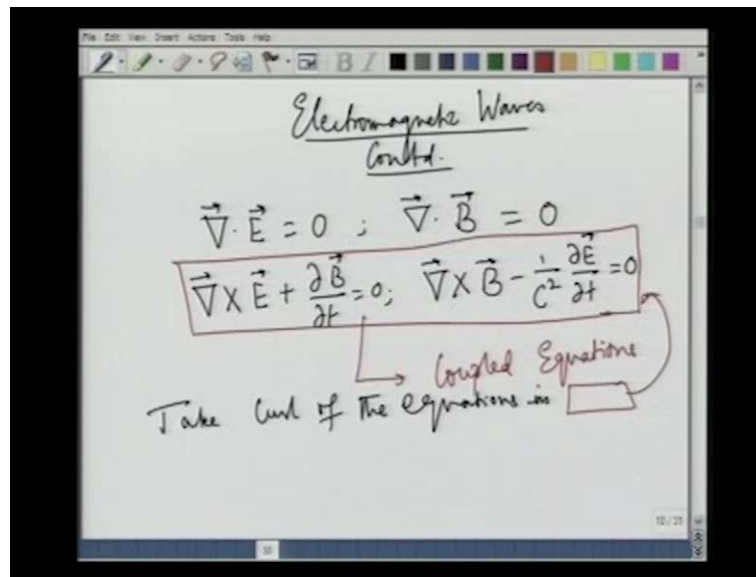 File Edit View Insert Actions Tools Help
B I
Electromagnetic Waves
Contd.
∇⃗·E⃗ = 0 ; ∇⃗·B⃗ = 0
∇⃗ X E⃗ + ∂B⃗/∂t = 0; ∇⃗ X B⃗ - 1/C² ∂E⃗/∂t = 0
Coupled Equations
Take Curl of the equations in